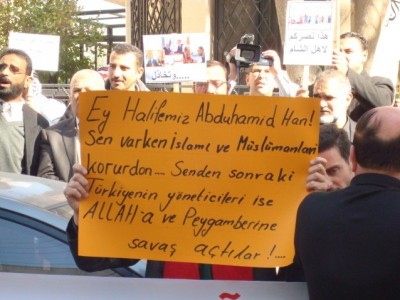 هذا نصركم
لأهل الشام
....وتخاذل
Ey Halifemiz Abduhamid Han!
Sen varken İslamı ve Müslümanları
korurdon.... Senden sonraki
Türkiyenin yöneticileri ise
ALLAH'a ve Peygamberine
savaş açtılar!....